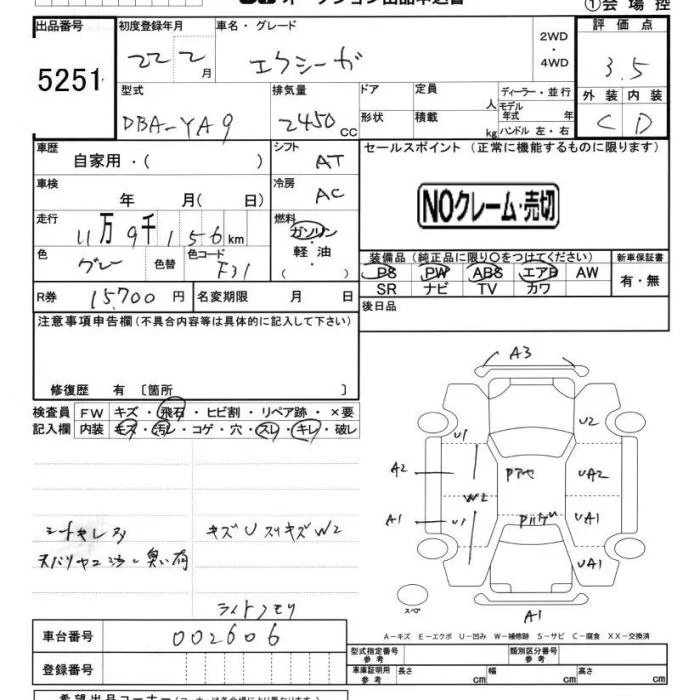 オークション出品申込書
①会場控
出品番号
5251
初度登録年月
22 2月
車名・グレード
エクシーガ
2WD
・
4WD
評価点
3.5
外装 内装
C D
型式
DBA-YA9
排気量
2450cc
ドア
定員
人
形状
積載
kg
ディーラー・並行
モデル年式 年
ハンドル 左・右
車歴
自家用・( )
シフト
AT
車検
年 月( 日)
冷房
AC
走行
11万9千156km
燃料
ガソリン
・
軽油
・
( )
色
グレー
色替
色コード
F31
R券 15,700円
名変期限 月 日
セールスポイント(正常に機能するものに限ります)
NOクレーム・売切
装備品(純正品に限り○をつけてください)
PS PW ABS エアB AW
SR ナビ TV カワ
新車保証書
有・無
後日品
注意事項申告欄(不具合内容等は具体的に記入して下さい)
修復歴 有〔箇所 〕
検査員記入欄
FW キズ・飛石・ヒビ割・リペア跡・×要
内装 キズ・汚レ・コゲ・穴・スレ・キレ・破レ
シートキレ
キズ U スリキズ W2
ライトクモリ
A3
U1
U2
A2
UA2
W2
A1
U1
UA1
UA1
A1
スペア
A−キズ E−エクボ U−凹み W−補修跡 S−サビ C−腐食 XX−交換済
車台番号 002606
登録番号
型式指定番号 参考
類別区分番号 参考
車庫証明用 参考 長さ cm 幅 cm 高さ cm
希望出品コーナー